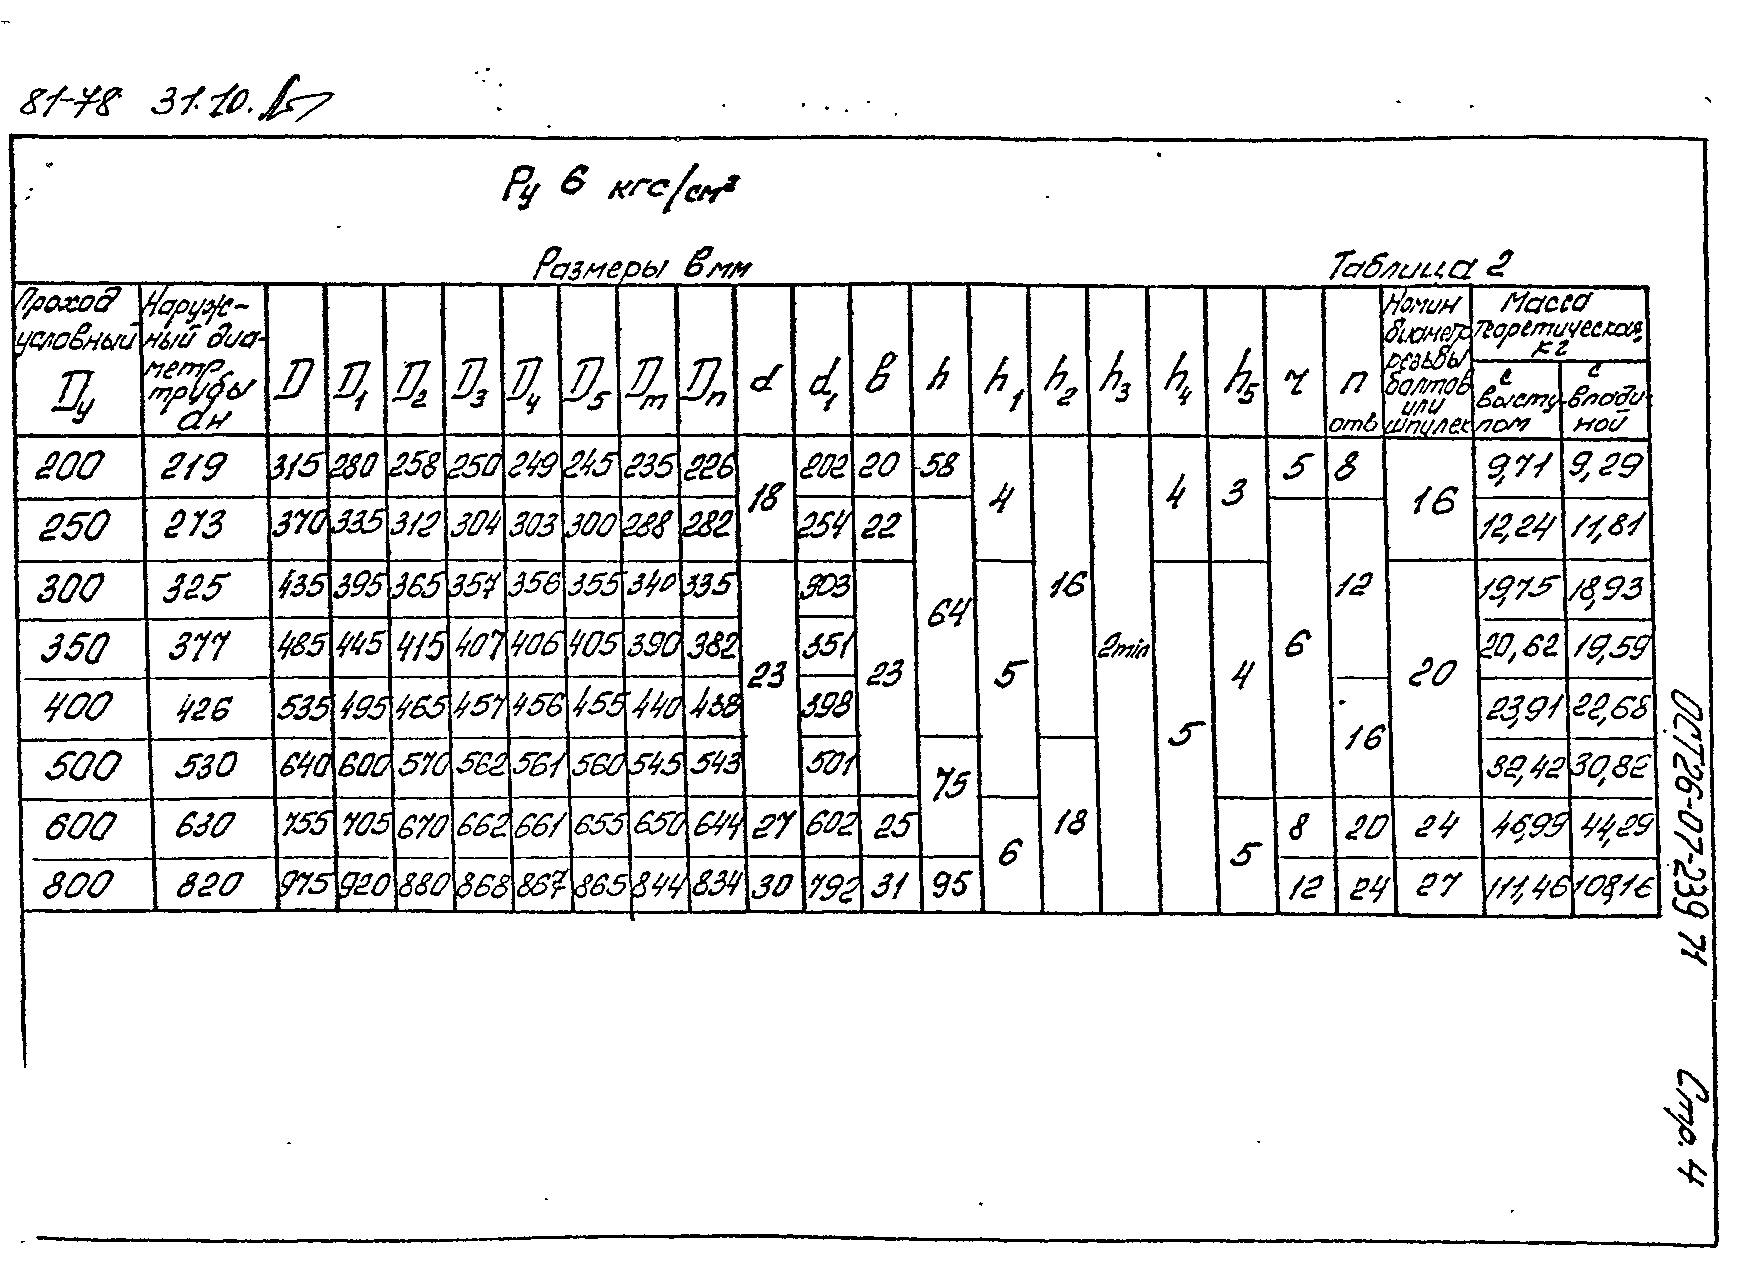 81-78 31.10.
Ру 6 кгс/см²
Размеры в мм Таблица 2
Проход условный Dу | Наруж-ный диа-метр трубы dн | D | D1 | D2 | D3 | D4 | D5 | Dm | Dn | d | d1 | в | h | h1 | h2 | h3 | h4 | h5 | r | n отв | Номин диаметр резьбы болтов или шпилек | Масса теоретическая, кг | с высту-пом | с впади-ной
200 219 315 280 258 250 249 245 235 226 18 202 20 58 4 16 2min 4 3 5 8 16 9,71 9,29
250 273 370 335 312 304 303 300 288 282 254 22 64 6 12 12,24 11,81
300 325 435 395 365 357 356 355 340 335 23 303 23 5 5 4 20 19,75 18,93
350 377 485 445 415 407 406 405 390 382 351 20,62 19,59
400 426 535 495 465 457 456 455 440 438 398 16 23,91 22,68
500 530 640 600 570 562 561 560 545 543 501 75 18 32,42 30,82
600 630 755 705 670 662 661 655 650 644 27 602 25 6 5 8 20 24 46,99 44,29
800 820 975 920 880 868 867 865 844 834 30 792 31 95 12 24 27 111,46 108,16
ОСТ26-07-239 71
Стр. 4